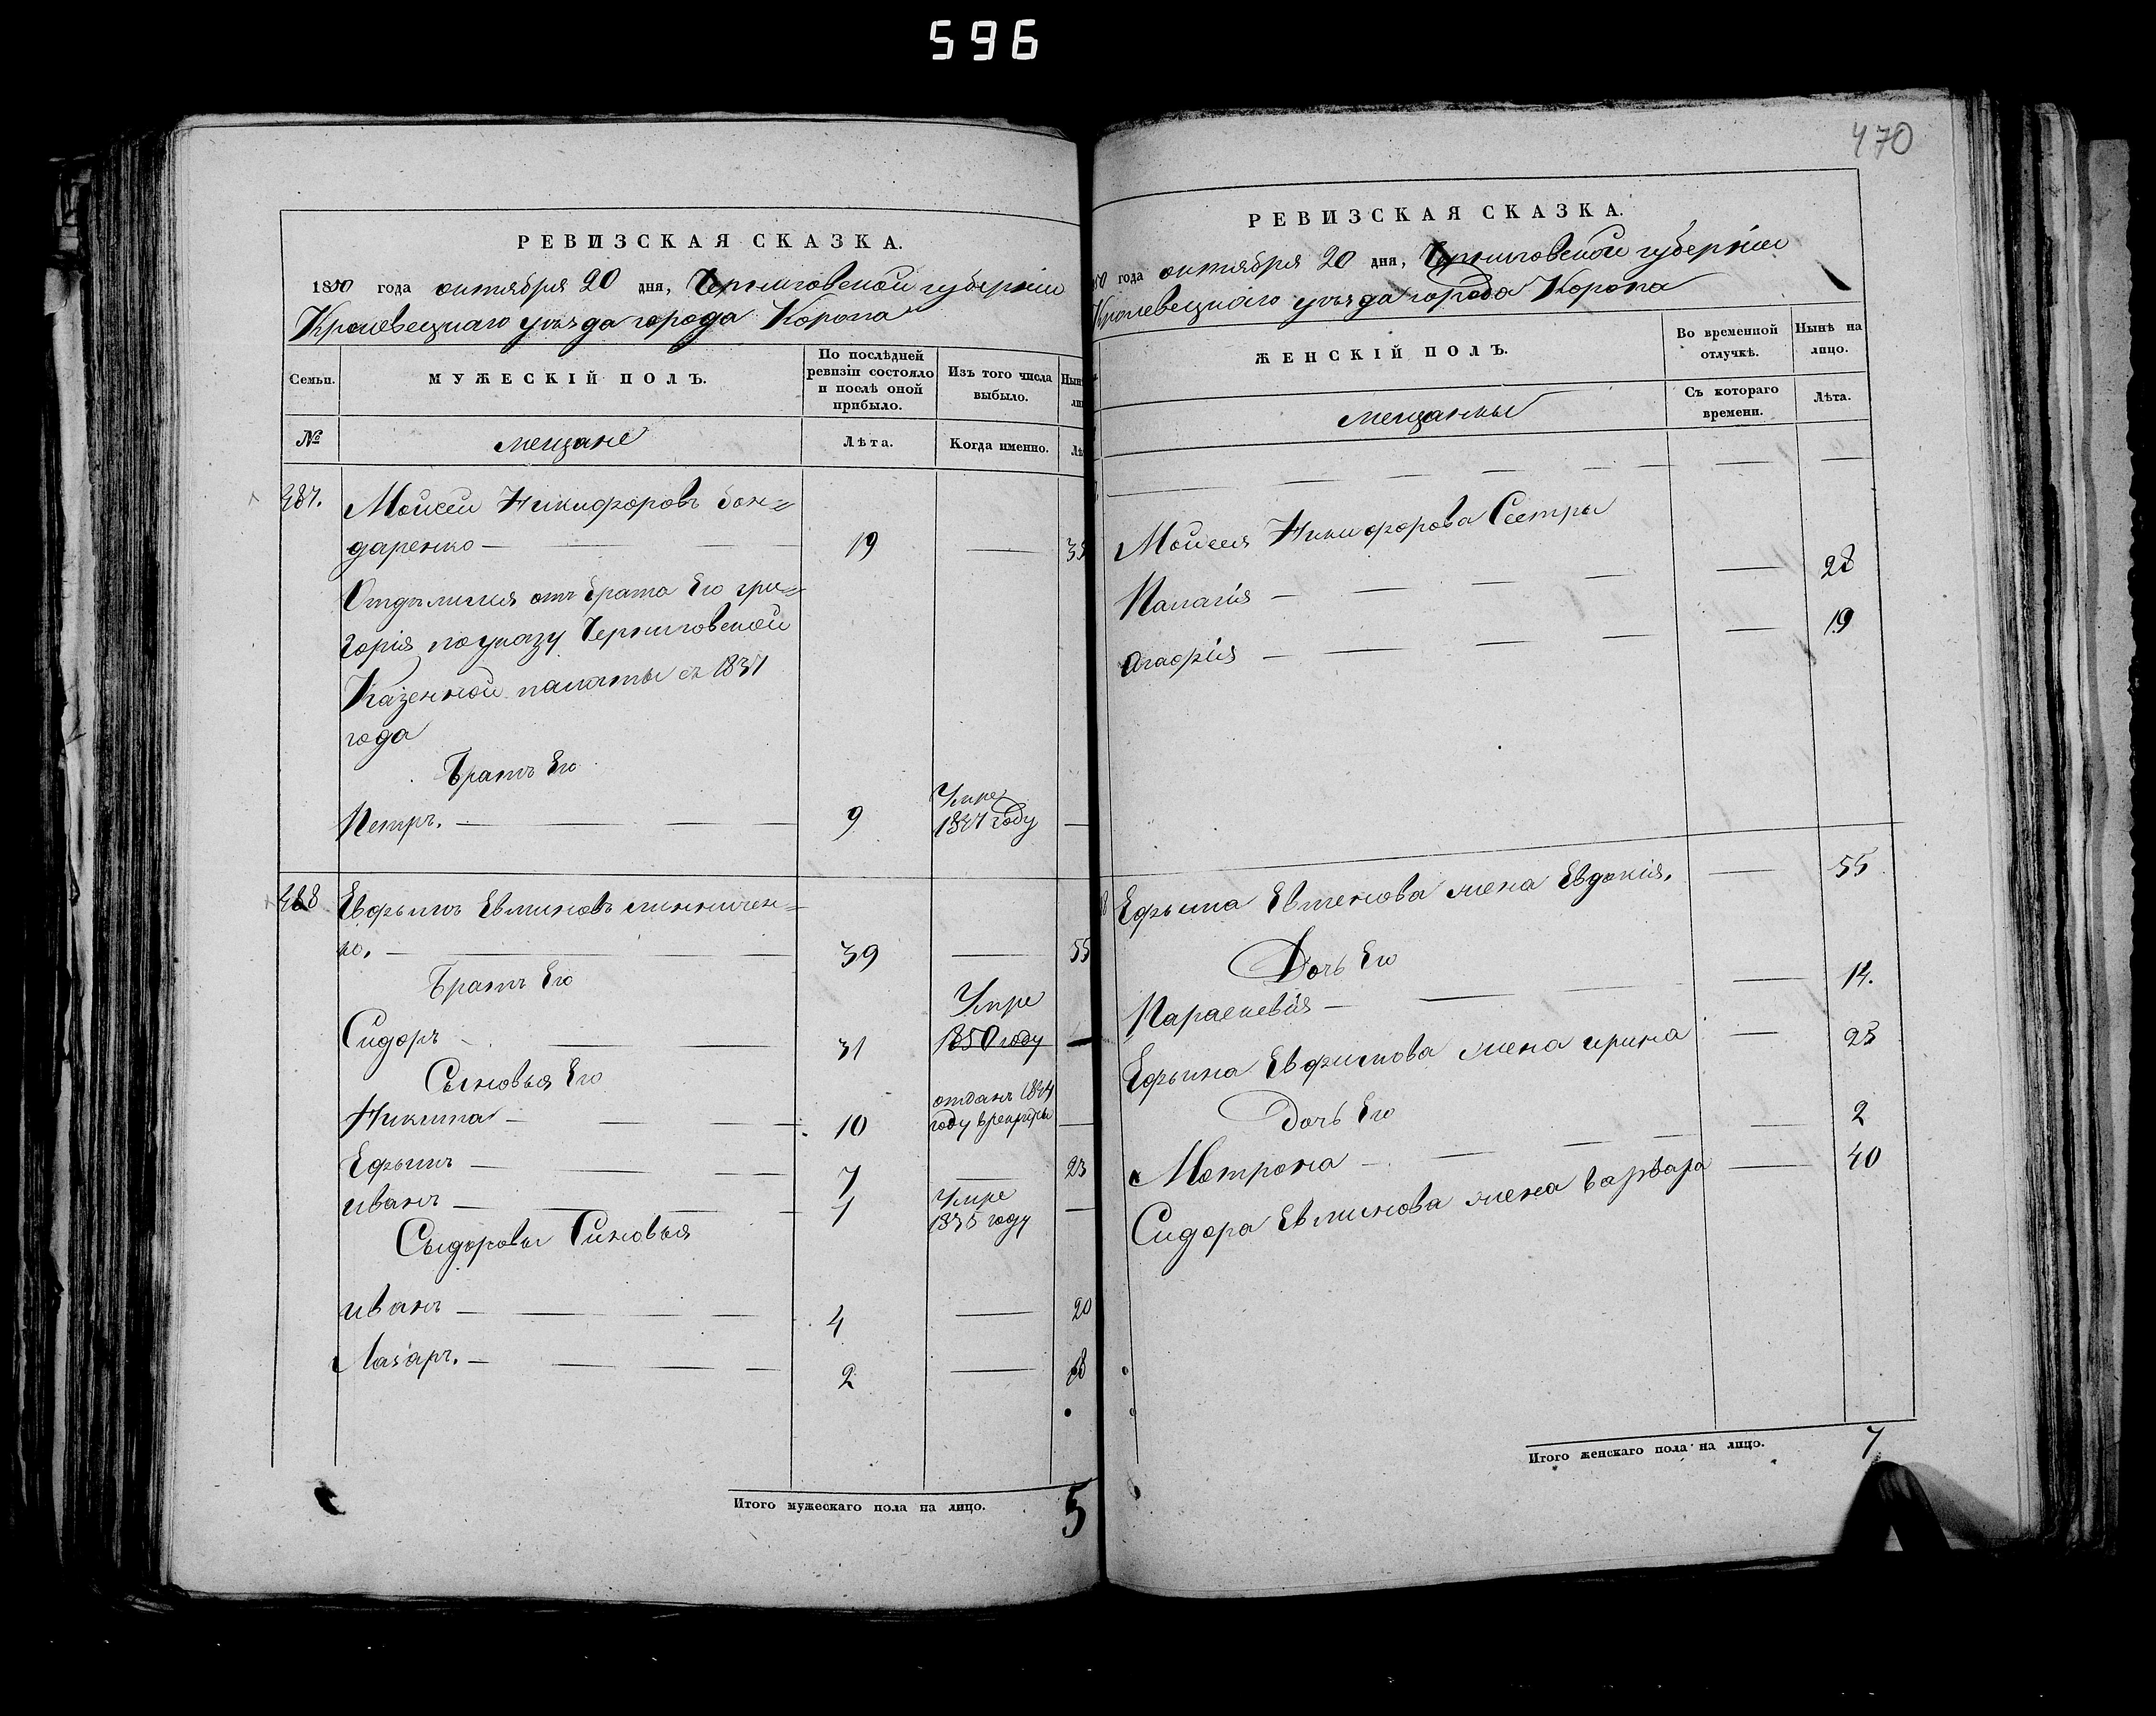 596
РЕВИЗСКАЯ СКАЗКА.
1850 года октября 20 дня, Черниговской губерніи
Кролевецкаго уѣзда города Коропа
Семьи.
МУЖЕСКІЙ ПОЛЪ.
По послѣдней ревизіи состояло и послѣ оной прибыло.
Изъ того числа выбыло.
№
мещане
Лѣта.
Когда именно.
487.
Моисеи Никифоровъ Бон=
даренко — 19 — 35
Отдѣлился отъ брата Его гри=
горія по указу Черниговской
Казенной палаты съ 1837
года
Братъ Его
Петръ. — 9
Умре
1837 году —
488
Евфимъ Евминовъ
ко. — 39 — 55
Братъ Его
Сидоръ — 31
Умре
1850 году —
Сыновья Его
Никита — 10
отданъ 1844
году в рекруты —
Ефимъ — 7 — 23
иванъ — 1
Умре
1835 году —
Сыдоровы Синовья
иванъ — 4 — 20
Лазаръ. — 2 — 18
Итого мужескаго пола на лицо. 5
470
РЕВИЗСКАЯ СКАЗКА.
50 года октября 20 дня, Черниговской губерніи
Кролевецкаго уѣзда города Коропа
ЖЕНСКІЙ ПОЛЪ.
Во временной отлучкѣ.
Нынѣ на лицо.
мещанкы
Съ котораго времени.
Лѣта.
Моисея Никифорова Сестры
Палагія — — 28
Агафія — — 19
8 Ефима Евменова жена Евдокія. — 55
Дочь Его
Параскевія — — 14.
Ефима Евфимова жена ирина — 23
Дочь Его
Мотрона — — 2
Сидора Евминова жена варвара — 40
Итого женскаго пола на лицо. 7